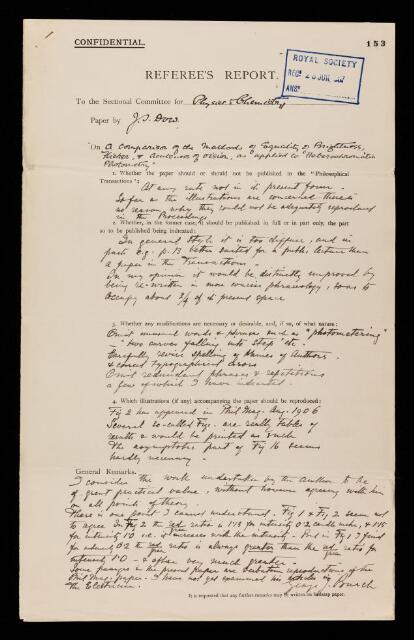 CONFIDENTIAL.
153
ROYAL SOCIETY
REC 28 JUN
ANS
REFEREE'S REPORT.
To the Sectional Committee for Physics & Chemistry
Paper by J. S. Dow.
"On A comparison of the Methods of Equality of Brightness,
Flicker, & acuteness of vision, as applied to "Heterochromatic
Photometry"
1. Whether the paper should or should not be published in the "Philosophical
Transactions":
At any rate not in its present form.
So far as the illustrations are concerned there is
no reason why they could not be adequately reproduced
in the Proceedings
2. Whether, in the former case, it should be published in full or in part only, the part
so to be published being indicated:
In general style it is too diffuse, and in
part e.g. p. 13 better suited for a public lecture than
a paper in the Transactions.
In my opinion it would be distinctly improved by
being re-written in more concise phraseology, so as to
occupy about 3/4 of its present space
3. Whether any modifications are necessary or desirable, and, if so, of what nature:
Omit unusual words & phrases such as "photometering"
"two curves falling into step" etc.
Carefully revise spelling of names of authors
& correct typographical errors
Omit redundant phrases & repetitions
a few of which I have indicated.
4. Which illustrations (if any) accompanying the paper should be reproduced:
Fig 2 has appeared in Phil Mag. Aug. 1906
Several so-called Figs. are really tables of
results & would be printed as such
The asymptotic part of Fig 16 seems
hardly necessary.
General Remarks.
I consider the work undertaken by the author to be
of great practical value, without however agreeing with him
on all points of theory.
There is one point I cannot understand. Fig 1 & Fig 2 seem not
to agree. In Fig 2 the red/green ratio is 1.13 for intensity 0.2 candle metre, & 1.45
for intensity 1.0 i.e. it increases with the intensity. But in Fig 1 I find
for intensity 0.2 the red/green ratio is always greater than the red/green ratio for
intensity 1.0 - & often very much greater.
Some passages in the present paper are verbatim reproductions of the
Phil Mag. paper. I have not yet examined his articles in
the Electrician.
George J. Burch
It is requested that any further remarks may be written on foolscap paper.